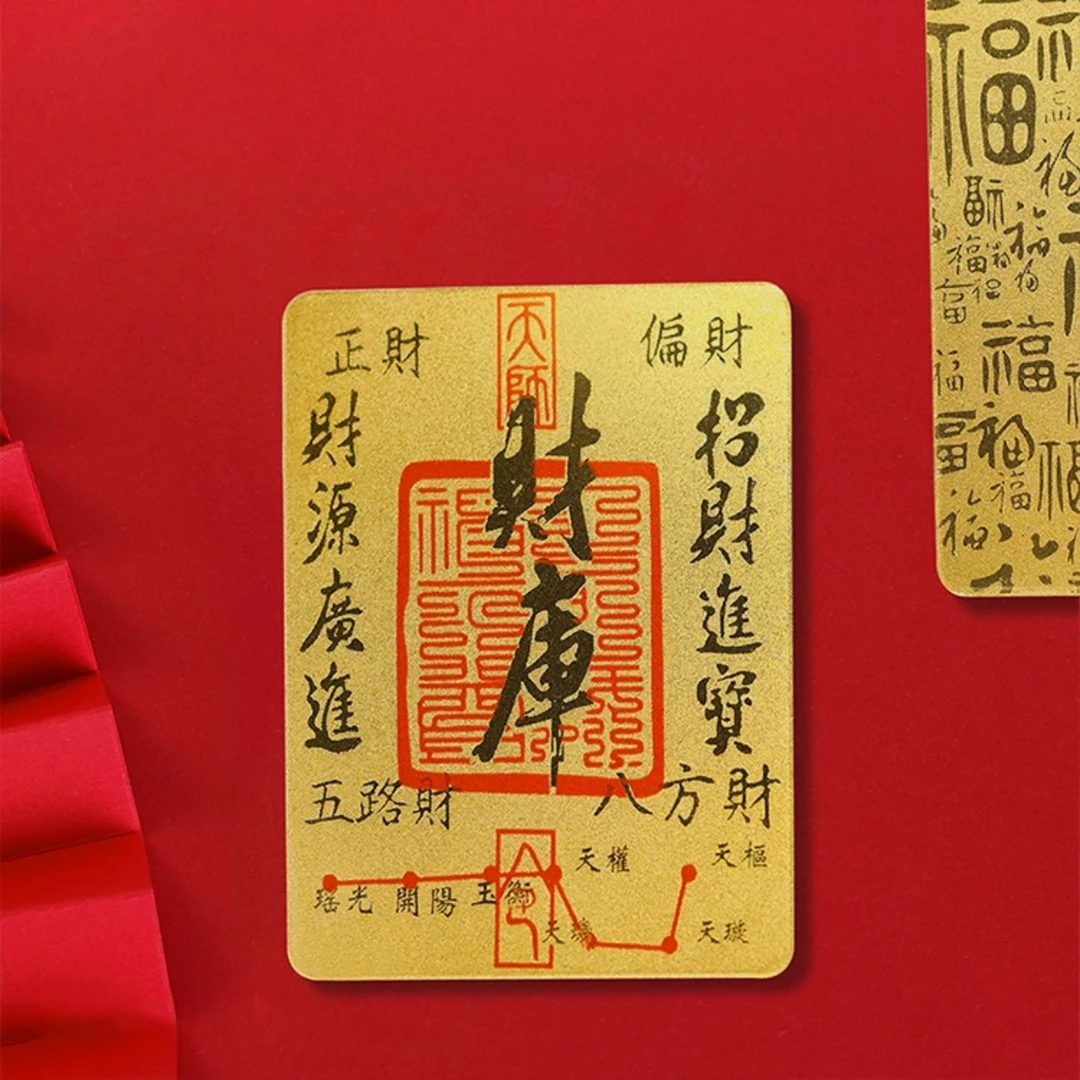 天師
正財
偏財
財源廣進
財庫
招財進寶
五路財
八方財
天權
天樞
瑤光
開陽
玉衡
令
天璣
天璇
福
福
福
福
福
福
福
福
福
福